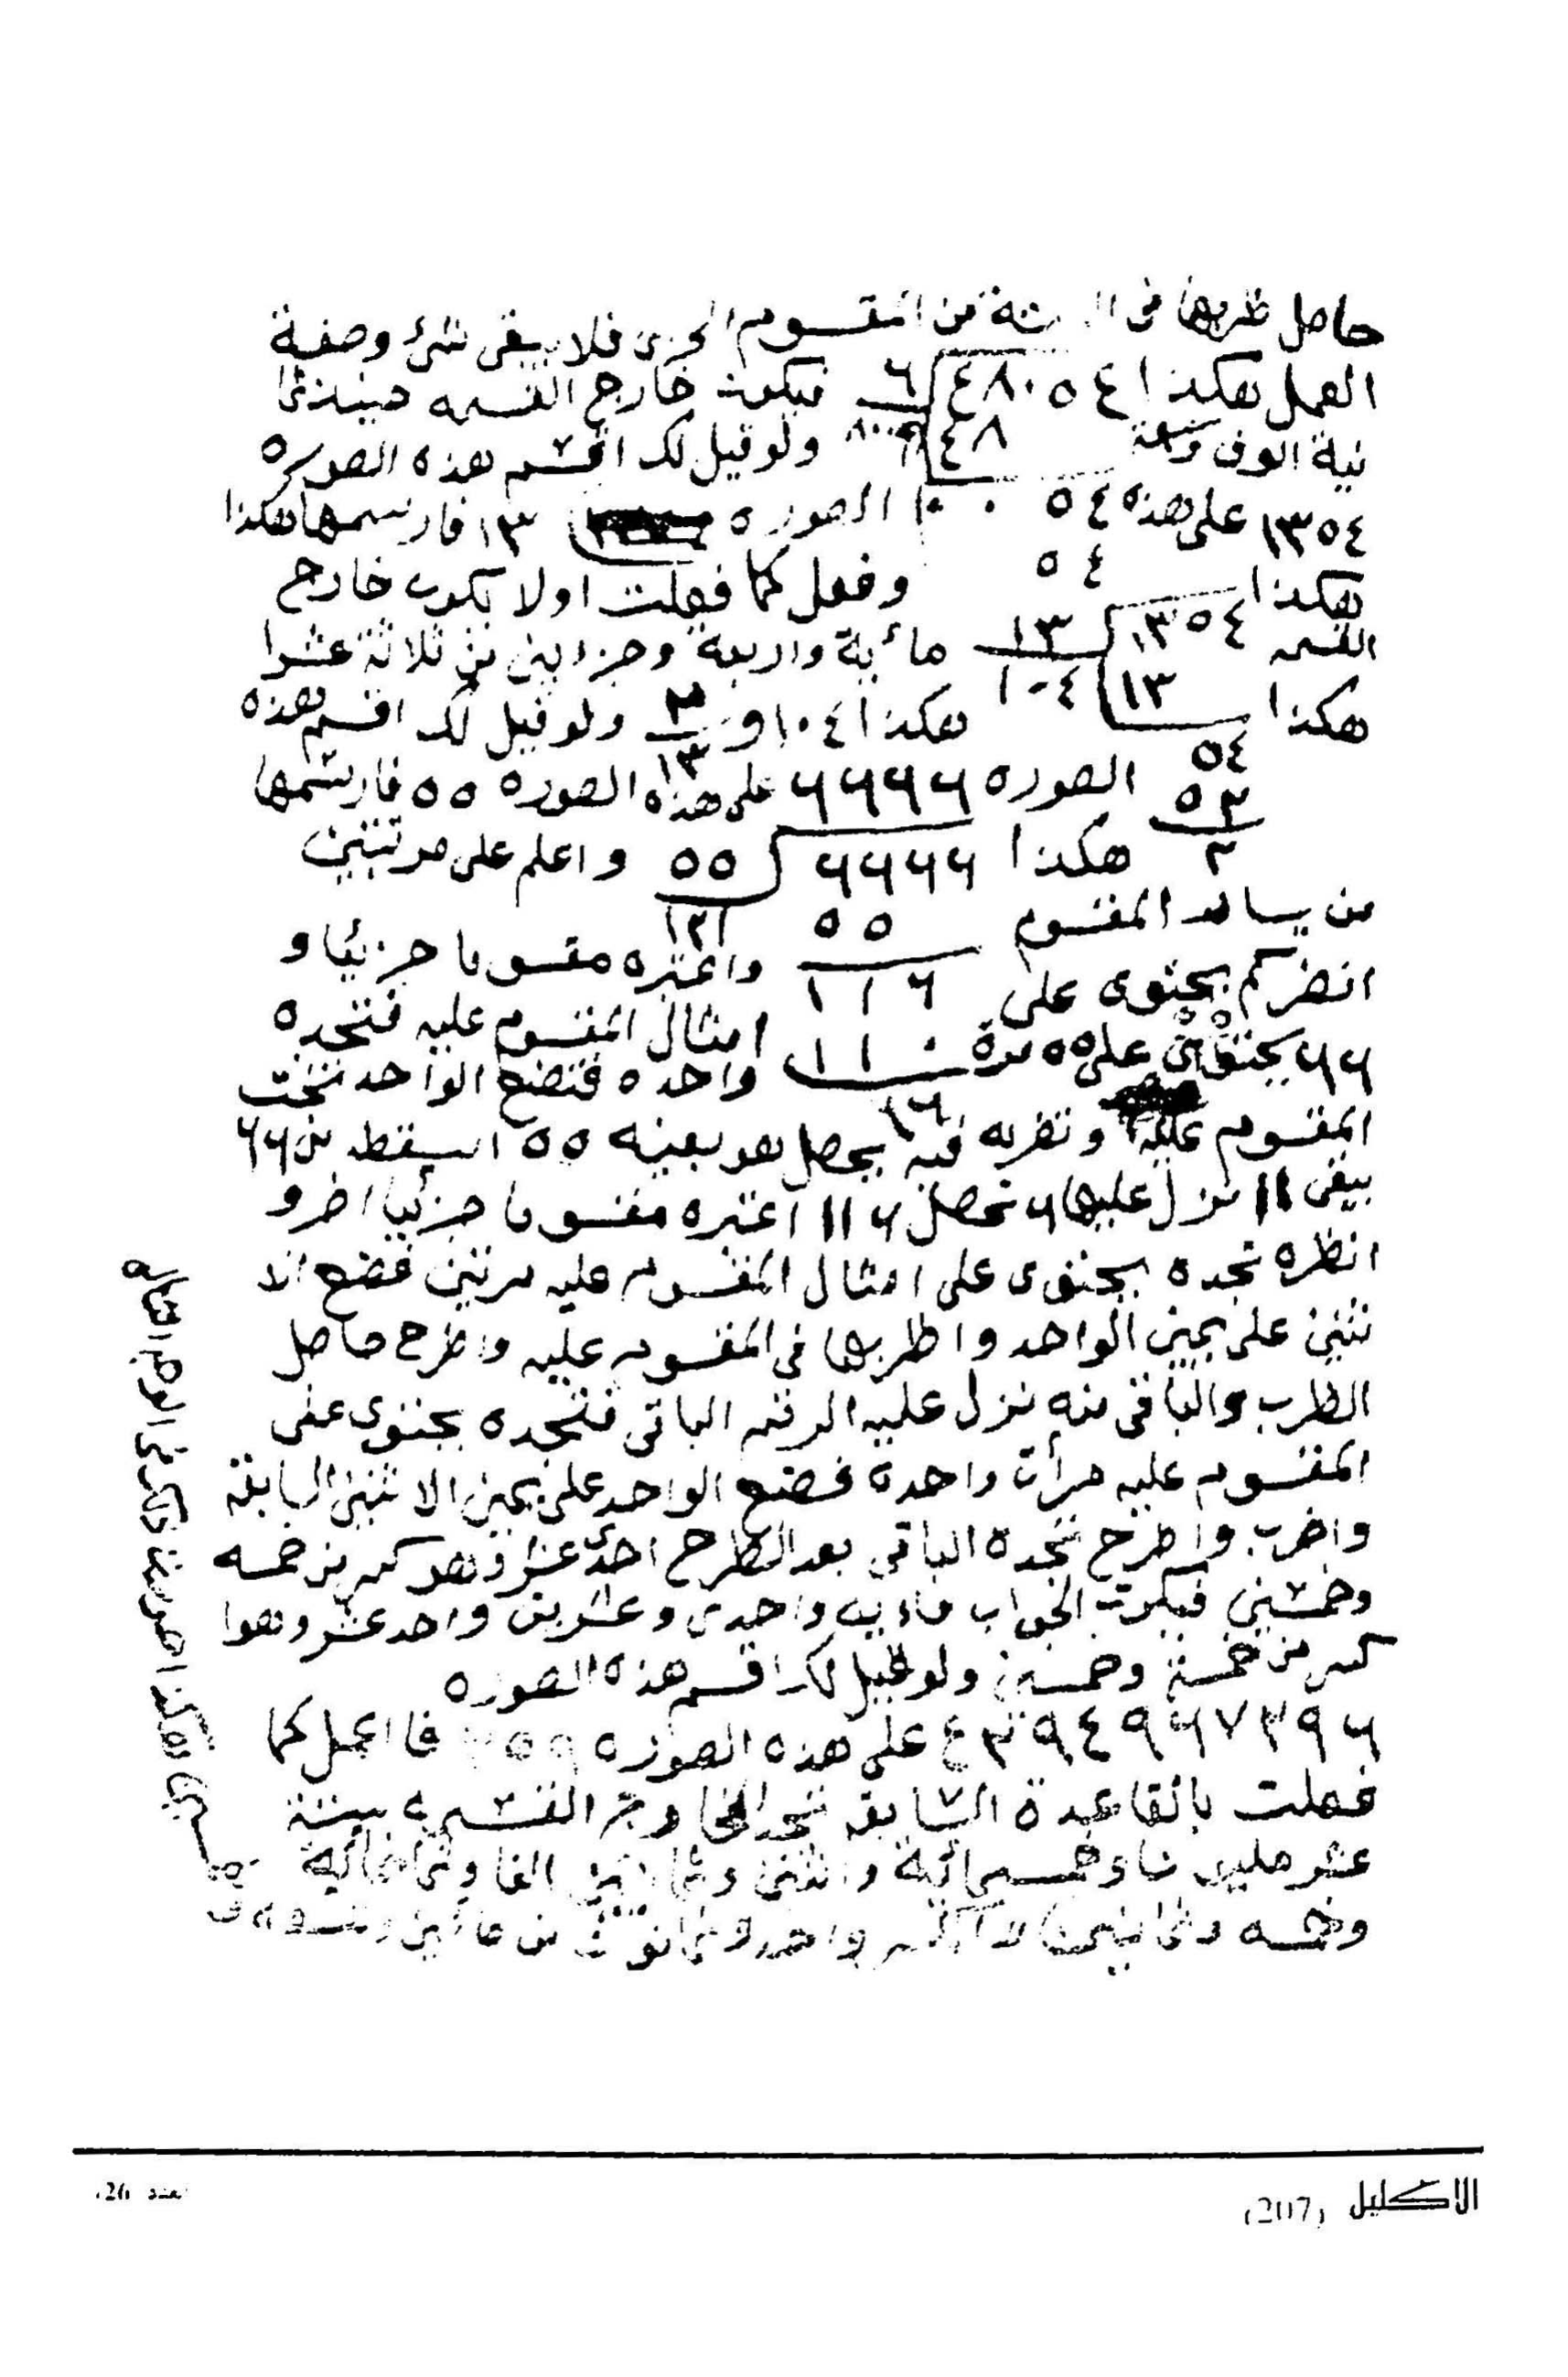 حاصل ظربها فى الستة من المقسوم الجزى فلا يبقى شئ وصفية
العمل هكذا ٤٨٠٥٤ ٦ فيكون خارج القسمه حينئذ ثما
نية الوف وتسعة ٤٨ ٨٠٠٩ ولو قيل لك اقسم هذه الصوره
١٣٥٤ على هذه ٥٤ ٠٠ الصوره ١٣ فارسمها هكذا
هكذا ٥٤ وفعل كما فعلت اولا يكون خارج
القسمه ١٣٥٤ ١٣ مأية واربعة وجزاين من ثلاثة عشرا
هكذا ١٣ ١٠٤ هكذا ١٠٤ و ٢/١٣ ولو قيل لك اقسم هذه
٥٤
٥٢ الصوره ٦٦٦٦ على هذه الصوره ٥٥ فارسمها
٢ هكذا ٦٦٦٦ ٥٥ واعلم على مرتبتين
من يسار المقسوم ٥٥ ١٢١ واعتبره مقسوما جزئيا و
انضر كم يحتوى على ١١٦ امثال المقسوم عليه فتجده
٦٦ يحتوى على ٥٥ مرة ١١٠ واحده فتضع الواحد تحت
١٦
المقسوم عليه وتضربه فيه يحصل هو بعينه ٥٥ اسقطه من ٦٦
يبقى ١١ نزل عليها ٦ تحصل ١١٦ اعتبره مقسوما جزئيا اخر و
انظره تجده يحتوى على امثال المقسوم عليه مرتين فضع الا
ثنين على يمين الواحد واظربها فى المقسوم عليه واطرح حاصل
الظرب والباقى منه نزل عليه الرقم الباقى فتجده يحتوى على
المقسوم عليه مرأت واحدة فضع الواحد على يمين الاثنين السابقة
واضرب واطرح تجده الباقى بعد الطرح احدى عشر وهو كسر من خمسه
وخمسين فيكون الجواب ماءيه واحدى وعشرين واحد عشر وهوا
كسر من خمسة وخمسين ولو قيل لك اقسم هذه الصوره
٤٣٩٤٩٦٧٣٩٦ على هذه الصوره ٢٥٩ فا اعمل كما
فعلت بالقاعدة السابقه تجد الخارج القسمه ستة
عشر مليونا وخمسمائية واثنين وثمانين الفا وثمانمائية
وخمسه وثمانين واحد وثمانون من مائتين وتسعه
الاكليل (207)
العدد 26،